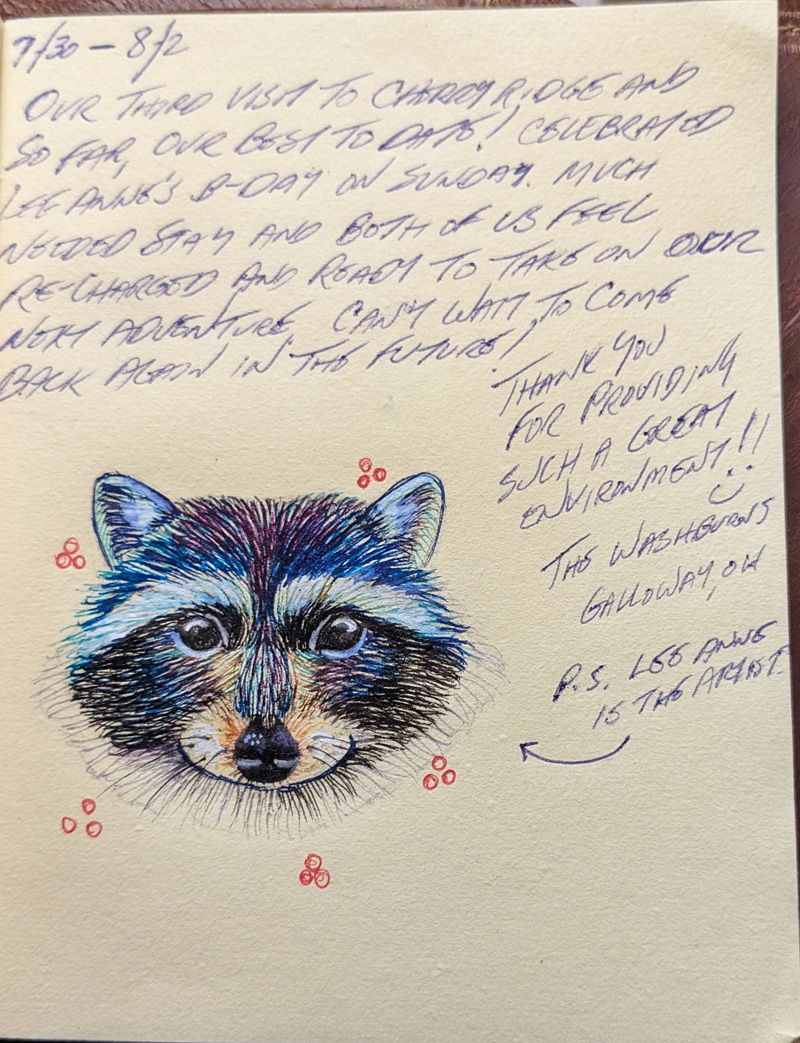 7/30 – 8/2
OUR THIRD VISIT TO CHERRY RIDGE AND
SO FAR, OUR BEST TO DATE! CELEBRATED
LEE ANNE'S B-DAY ON SUNDAY. MUCH
NEEDED STAY AND BOTH OF US FEEL
RE-CHARGED AND READY TO TAKE ON OUR
NEXT ADVENTURE. CAN'T WAIT TO COME
BACK AGAIN IN THE FUTURE!
THANK YOU
FOR PROVIDING
SUCH A GREAT
ENVIRONMENT!!
THE WASHBURNS
GALLOWAY, OH
P.S. LEE ANNE
IS THE ARTIST.